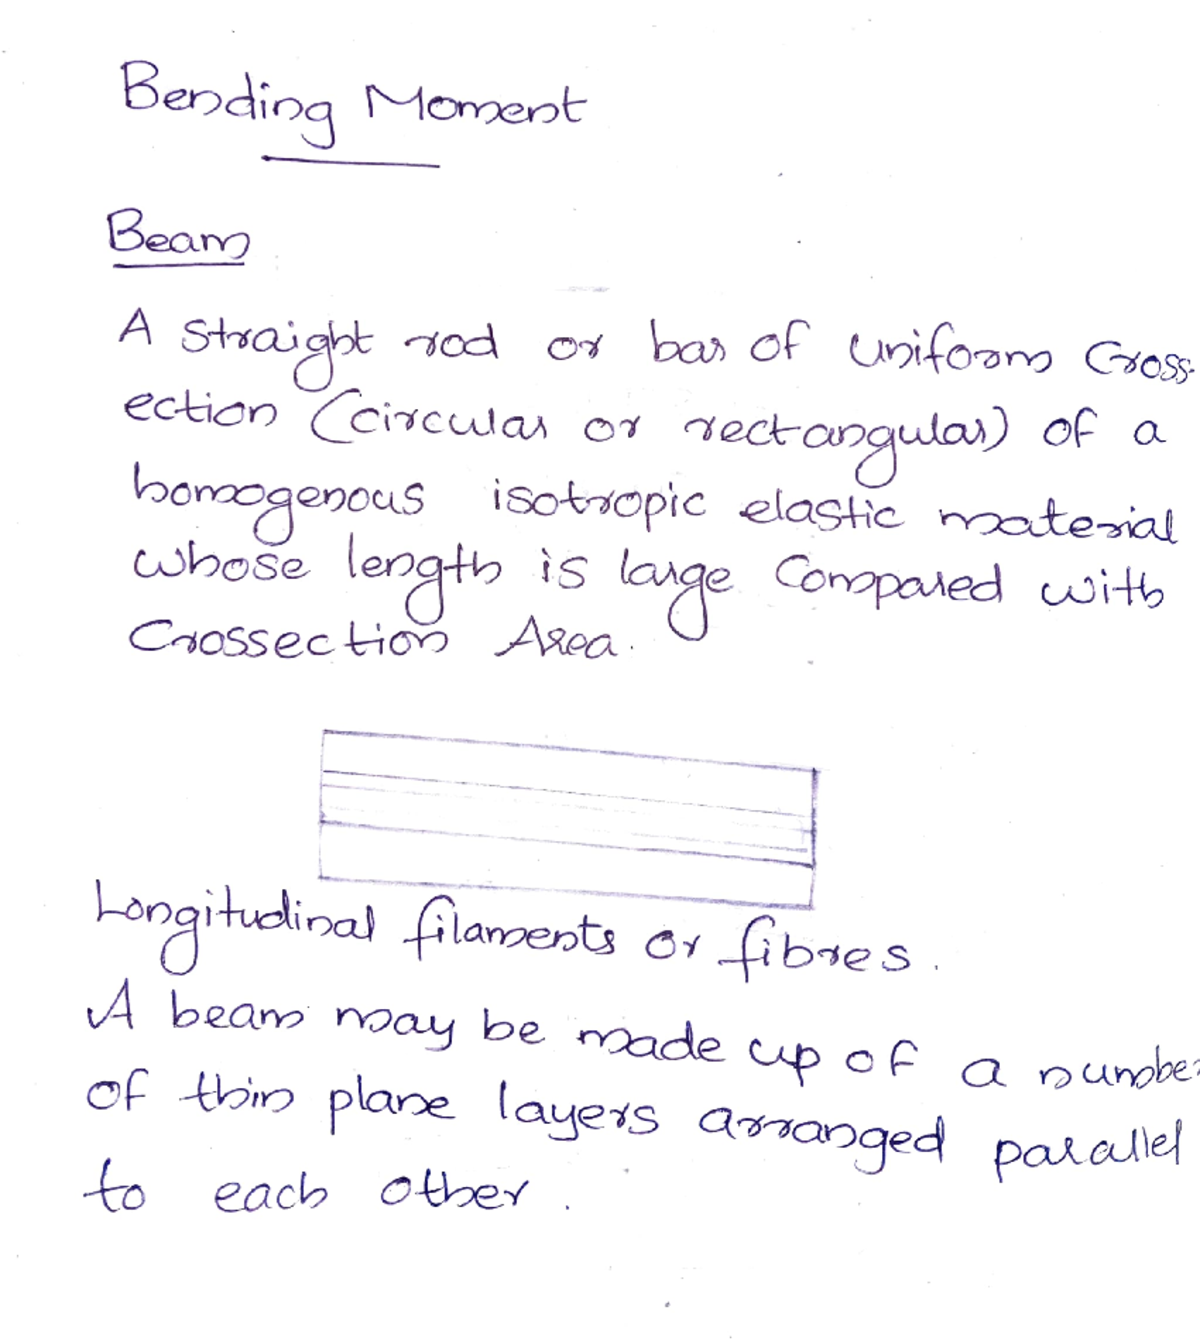 Bending Moment
Beam
A straight rod or bar of uniform Cross-
ection (circular or rectangular) of a
homogenous isotropic elastic material
whose length is large Compared with
Crossection Area.
Longitudinal filaments or fibres.
A beam may be made up of a number
of thin plane layers arranged parallel
to each other.